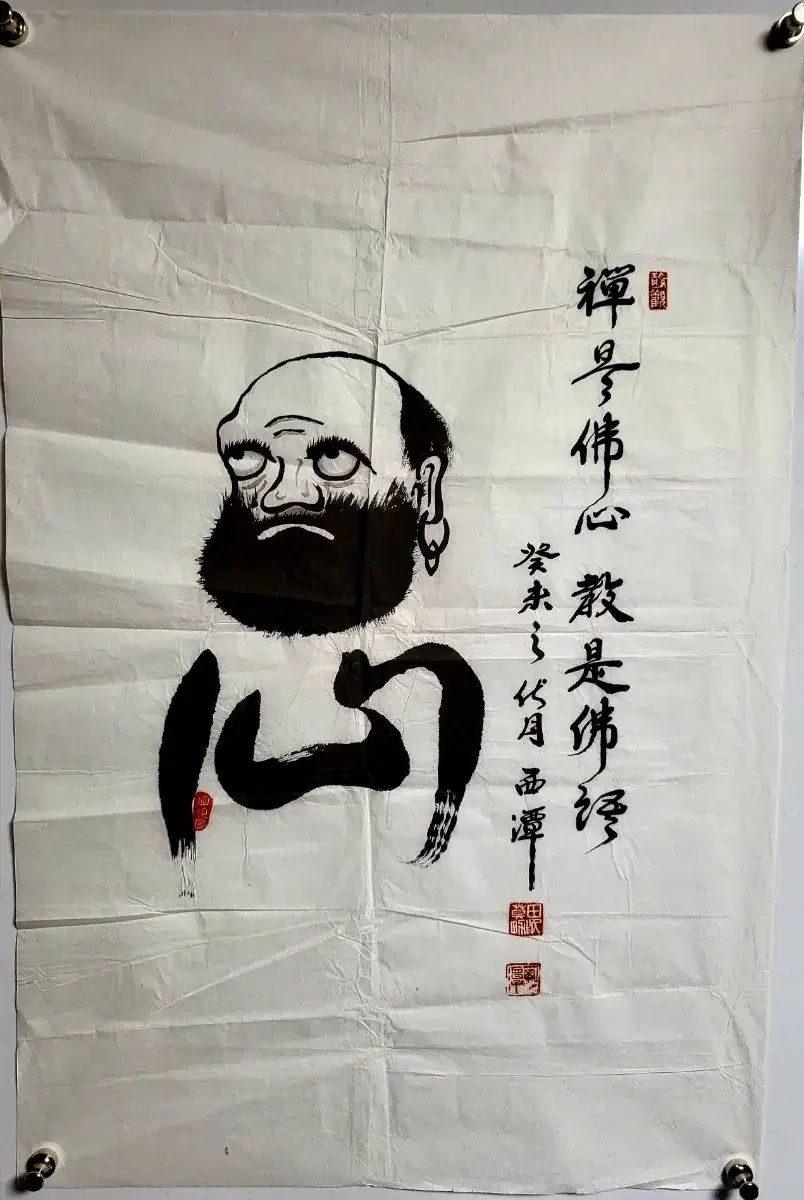 禪是佛心 教是佛語
癸未之伏月 西潭
心